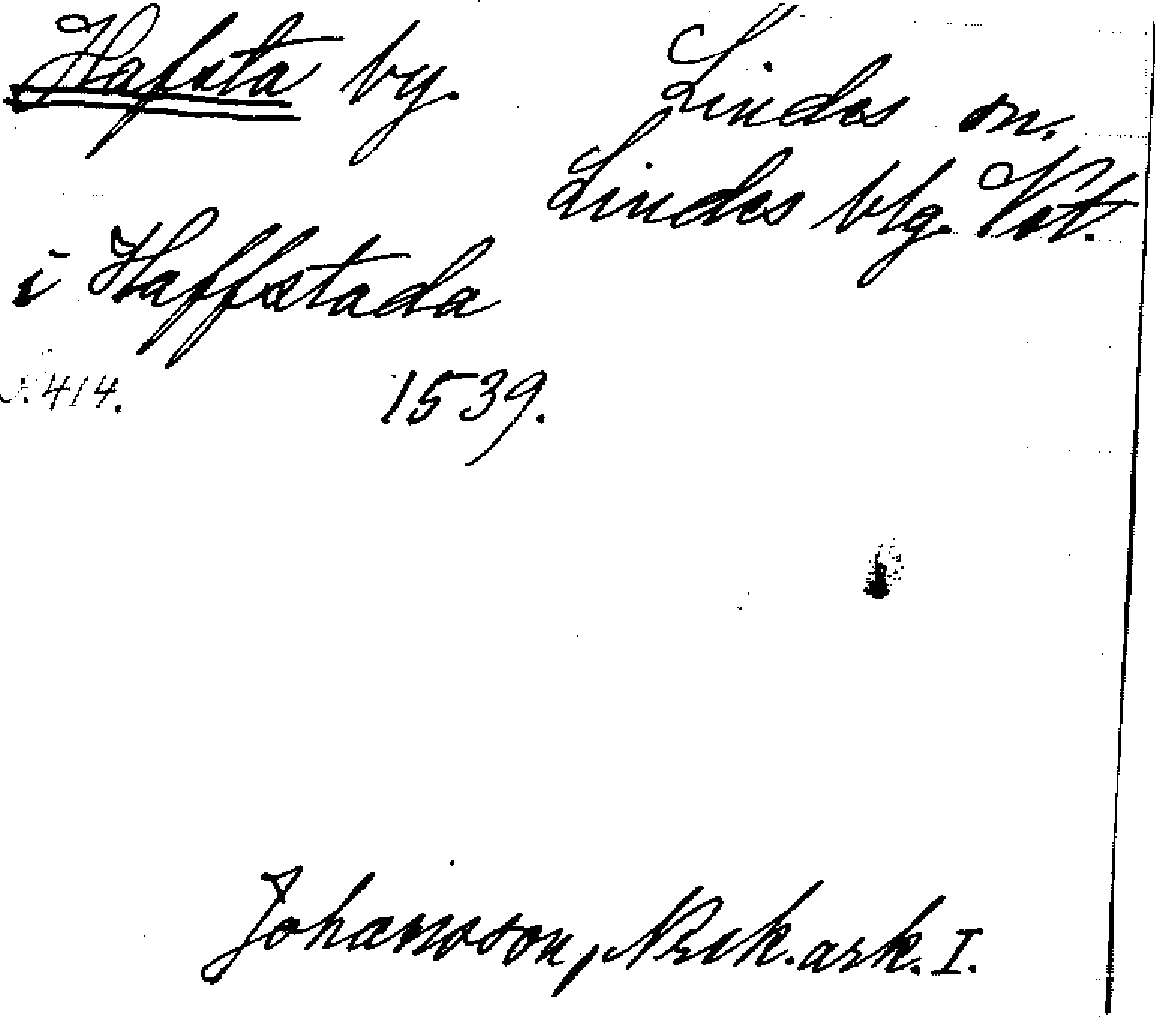 Hafsta by.
Lindes sn.
Lindes blg. Vst.
i Haffstada
s. 414.
1539.
Johansson, Nrik. ark. I.